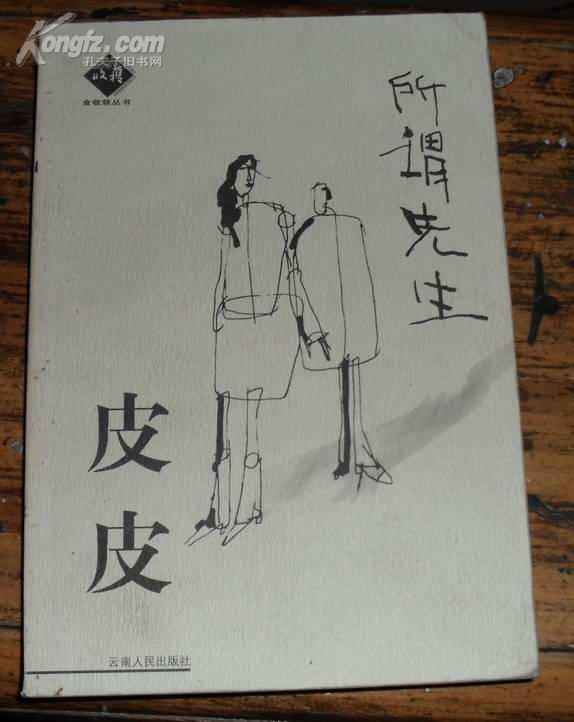 Kongfz.com
孔夫子旧书网
收穫
金收获丛书
所谓先生
皮皮
云南人民出版社